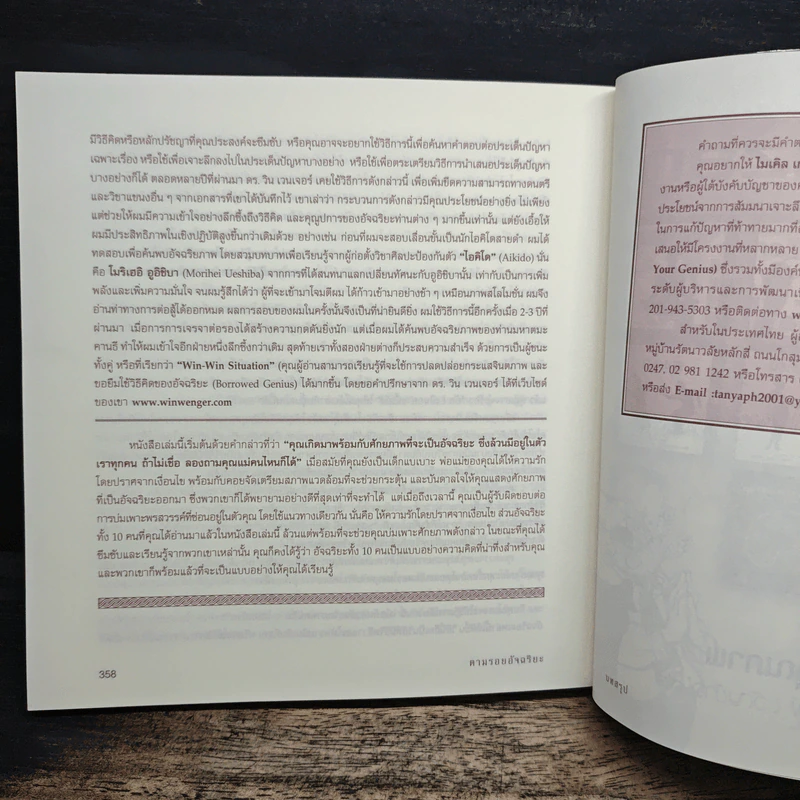 มีวิธีคิดหรือหลักปรัชญาที่คุณประสงค์จะซึมซับ หรือคุณอาจจะอยากใช้วิธีการนี้เพื่อค้นหาคำตอบต่อประเด็นปัญหา
เฉพาะเรื่อง หรือใช้เพื่อเจาะลึกลงไปในประเด็นปัญหาบางอย่าง หรือใช้เพื่อตระเตรียมวิธีการนำเสนอประเด็นปัญหา
บางอย่างก็ได้ ตลอดหลายปีที่ผ่านมา ดร. วิน เวนเจอร์ เคยใช้วิธีการดังกล่าวนี้ เพื่อเพิ่มขีดความสามารถทางดนตรี
และวิชาแขนงอื่น ๆ จากเอกสารที่เขาได้บันทึกไว้ เขาเล่าว่า กระบวนการดังกล่าวมีคุณประโยชน์อย่างยิ่ง ไม่เพียง
แต่ช่วยให้ผมมีความเข้าใจอย่างลึกซึ้งถึงวิธีคิด และคุณูปการของอัจฉริยะท่านต่าง ๆ มากขึ้นเท่านั้น แต่ยังเอื้อให้
ผมมีประสิทธิภาพในเชิงปฏิบัติสูงขึ้นกว่าเดิมด้วย อย่างเช่น ก่อนที่ผมจะสอบเลื่อนชั้นเป็นนักไอคิโดสายดำ ผมได้
ทดสอบเพื่อค้นพบอัจฉริยภาพ โดยสวมบทบาทเพื่อเรียนรู้จากผู้ก่อตั้งวิชาศิลปะป้องกันตัว "ไอคิโด" (Aikido) นั่น
คือ โมริเฮอิ อูอิชิบา (Morihei Ueshiba) จากการที่ได้สนทนาแลกเปลี่ยนทัศนะกับอูอิชิบานั้น เท่ากับเป็นการเพิ่ม
พลังและเพิ่มความมั่นใจ จนผมรู้สึกได้ว่า ผู้ที่จะเข้ามาโจมตีผม ได้ก้าวเข้ามาอย่างช้า ๆ เหมือนภาพสโลโมชั่น ผมจึง
อ่านท่าทางการต่อสู้ได้ออกหมด ผลการสอบของผมในครั้งนั้นจึงเป็นที่น่ายินดียิ่ง ผมใช้วิธีการนี้อีกครั้งเมื่อ 2-3 ปีที่
ผ่านมา เมื่อการการเจรจาต่อรองได้สร้างความกดดันยิ่งนัก แต่เมื่อผมได้ค้นพบอัจฉริยภาพของท่านมหาตมะ
คานธี ทำให้ผมเข้าใจอีกฝ่ายหนึ่งลึกซึ้งกว่าเดิม สุดท้ายเราทั้งสองฝ่ายต่างก็ประสบความสำเร็จ ด้วยการเป็นผู้ชนะ
ทั้งคู่ หรือที่เรียกว่า "Win-Win Situation" (คุณผู้อ่านสามารถเรียนรู้ที่จะใช้การปลดปล่อยกระแสจินตภาพ และ
ขอยืมใช้วิธีคิดของอัจฉริยะ (Borrowed Genius) ได้มากขึ้น โดยขอคำปรึกษาจาก ดร. วิน เวนเจอร์ ได้ที่เว็บไซต์
ของเขา www.winwenger.com
หนังสือเล่มนี้เริ่มต้นด้วยคำกล่าวที่ว่า "คุณเกิดมาพร้อมกับศักยภาพที่จะเป็นอัจฉริยะ ซึ่งล้วนมีอยู่ในตัว
เราทุกคน ถ้าไม่เชื่อ ลองถามคุณแม่คนไหนก็ได้" เมื่อสมัยที่คุณยังเป็นเด็กแบเบาะ พ่อแม่ของคุณได้ให้ความรัก
โดยปราศจากเงื่อนไข พร้อมกับคอยจัดเตรียมสภาพแวดล้อมที่จะช่วยกระตุ้น และบันดาลใจให้คุณแสดงศักยภาพ
ที่เป็นอัจฉริยะออกมา ซึ่งพวกเขาก็ได้พยายามอย่างดีที่สุดเท่าที่จะทำได้ แต่เมื่อถึงเวลานี้ คุณเป็นผู้รับผิดชอบต่อ
การบ่มเพาะพรสวรรค์ที่ซ่อนอยู่ในตัวคุณ โดยใช้แนวทางเดียวกัน นั่นคือ ให้ความรักโดยปราศจากเงื่อนไข ส่วนอัจฉริยะ
ทั้ง 10 คนที่คุณได้อ่านมาแล้วในหนังสือเล่มนี้ ล้วนแต่พร้อมที่จะช่วยคุณบ่มเพาะศักยภาพดังกล่าว ในขณะที่คุณได้
ซึมซับและเรียนรู้จากพวกเขาเหล่านั้น คุณก็คงได้รู้ว่า อัจฉริยะทั้ง 10 คนเป็นแบบอย่างความคิดที่น่าทึ่งสำหรับคุณ
และพวกเขาก็พร้อมแล้วที่จะเป็นแบบอย่างให้คุณได้เรียนรู้
358
ตามรอยอัจฉริยะ
คำถามที่ควรจะมีคำต
คุณอยากให้ ไมเคิล เก
งานหรือผู้ใต้บังคับบัญชาของค
ประโยชน์จากการสัมมนาเจาะลึ
ในการแก้ปัญหาที่ท้าทายมากที่
เสนอให้มีโครงงานที่หลากหลาย
Your Genius) ซึ่งรวมทั้งมีองค์
ระดับผู้บริหารและการพัฒนาเ
201-943-5303 หรือติดต่อทาง w
สำหรับในประเทศไทย ผู้
หมู่บ้านรัตนาวลัยหลักสี่ ถนนโกสุม
0247, 02 981 1242 หรือโทรสาร
หรือส่ง E-mail :tanyaph2001@y
บทสรุป